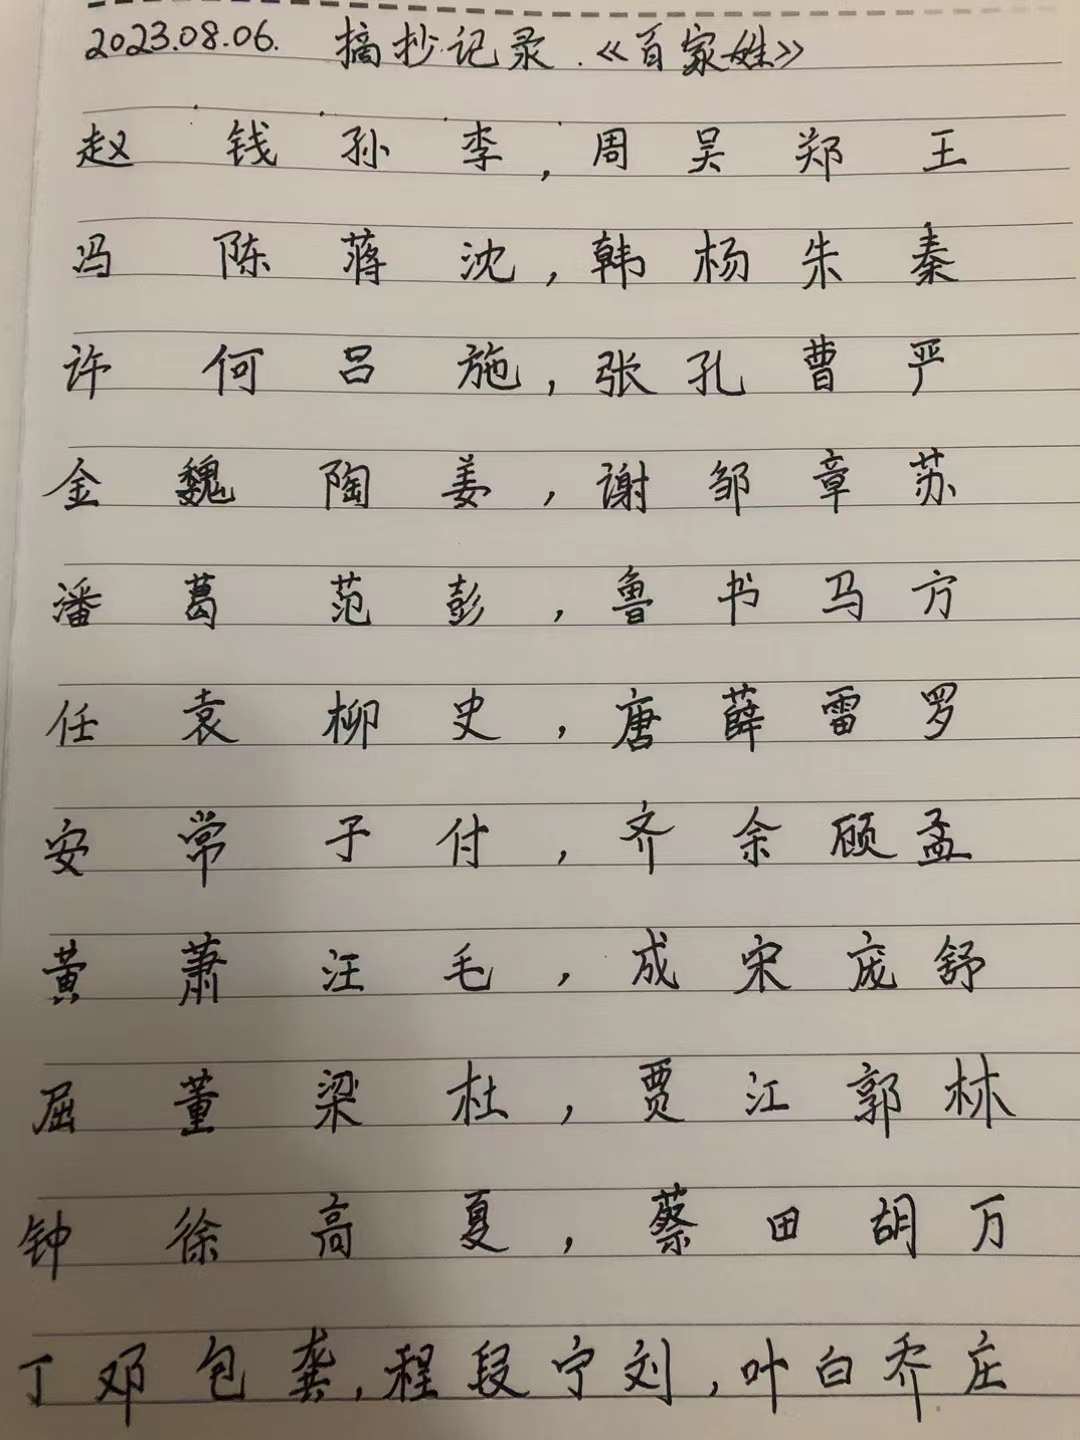 2023.08.06. 摘抄记录.《百家姓》
赵 钱 孙 李,周 吴 郑 王
冯 陈 蒋 沈,韩 杨 朱 秦
许 何 吕 施,张 孔 曹 严
金 魏 陶 姜,谢 邹 章 苏
潘 葛 范 彭,鲁 书 马 方
任 袁 柳 史,唐 薛 雷 罗
安 常 于 付,齐 余 顾 孟
黄 萧 汪 毛,成 宋 庞 舒
屈 董 梁 杜,贾 江 郭 林
钟 徐 高 夏,蔡 田 胡 万
丁 邓 包 龚,程 段 宁 刘,叶 白 乔 庄